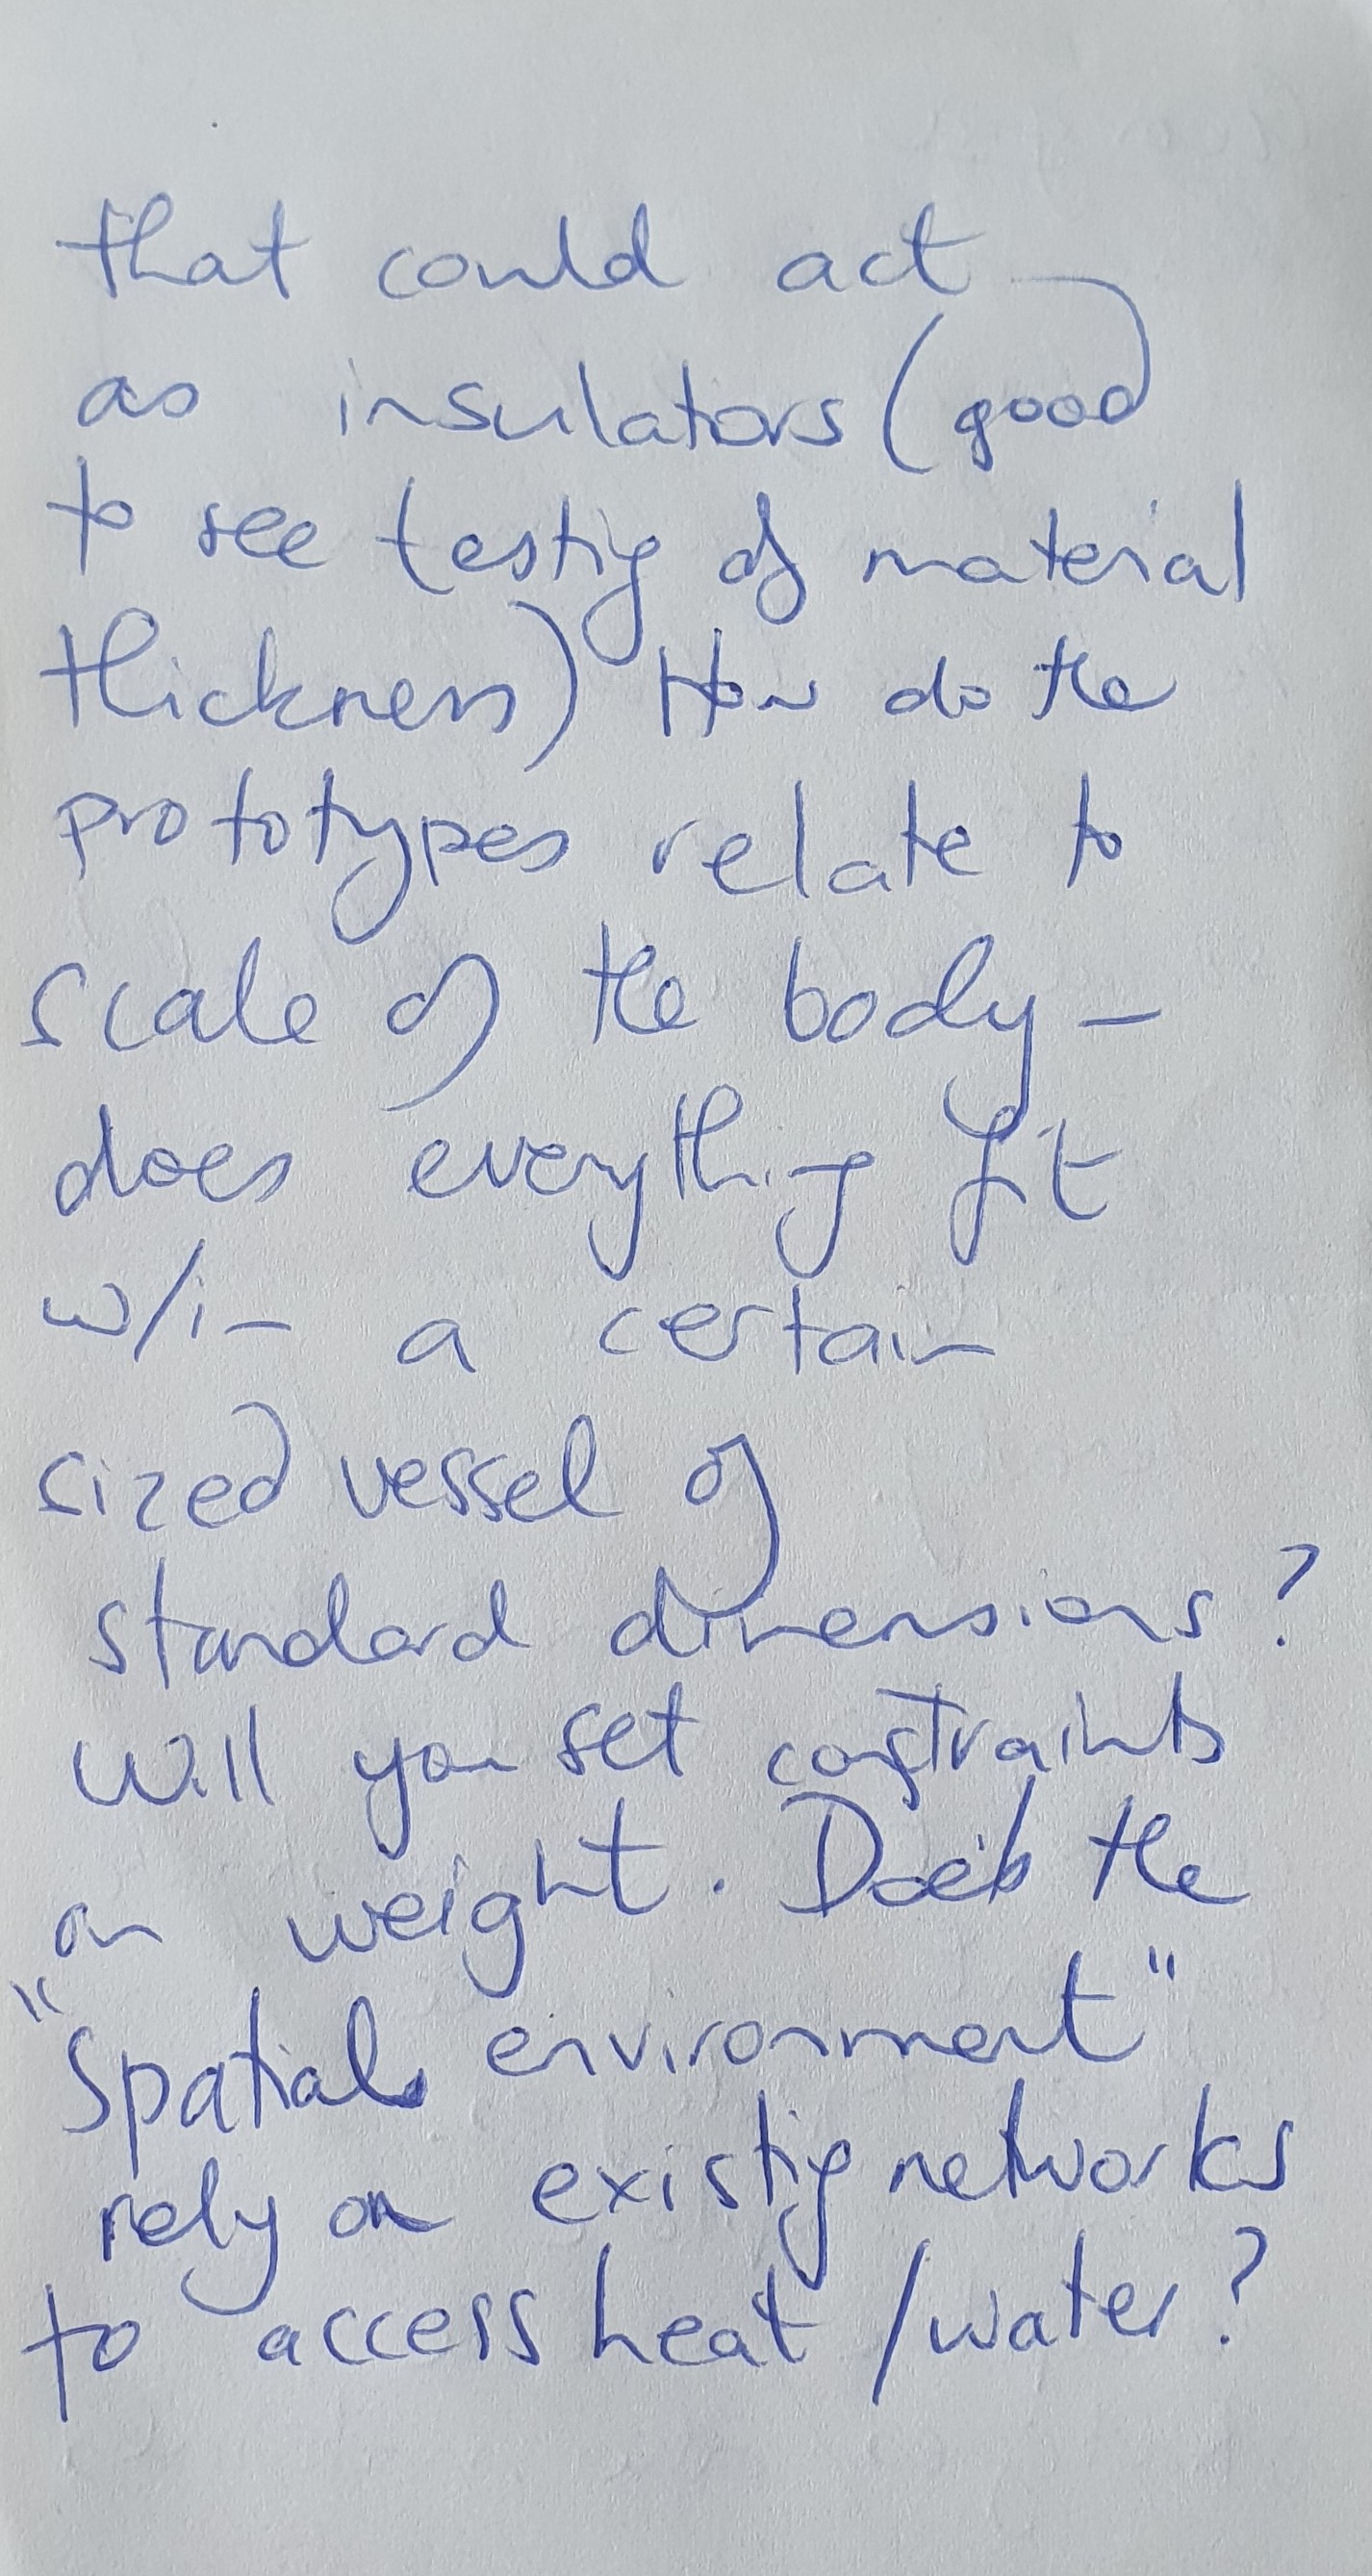 that could act
as insulators (good
to see testing of material
thickness) How do the
prototypes relate to
scale of the body –
does everything fit
w/in a certain
sized vessel of
standard dimensions?
Will you set constraints
on weight. Does the
"Spatial environment"
rely on existing networks
to access heat / water?